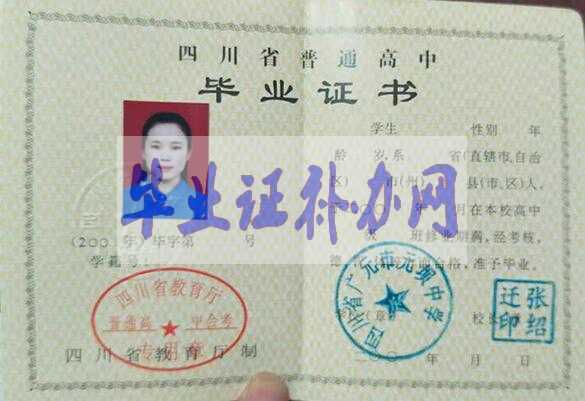 四川省普通高中
毕业证书
学生 性别 年
龄 岁,系 省(直辖市、自治
区) 市(州) 县(市、区)人,
月在本校高中
班修业期满,经考核,
合格,准予毕业。
毕业证补办网
(200 年)毕字第 号
学籍号:
四川省教育厅
普通高 中会考
专用章
四川省教育厅制
四川省广元市元坝中学
校长
张绍
迁印
二〇〇 年 月 日